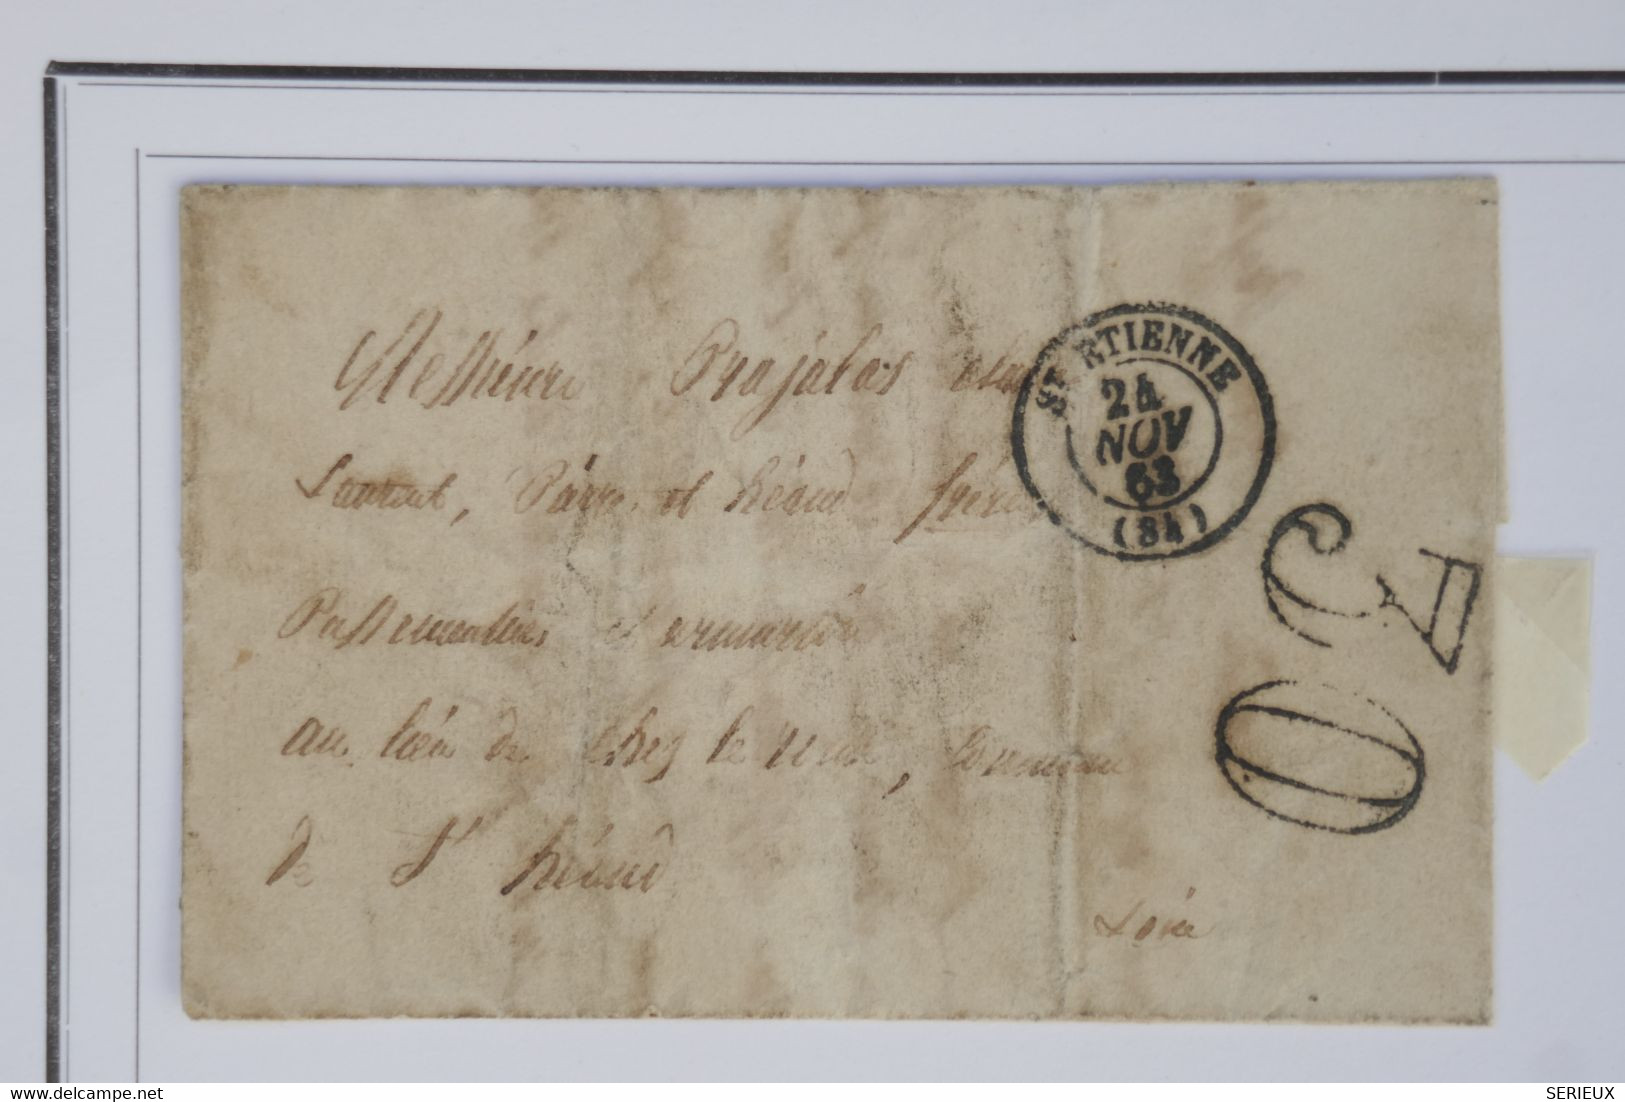 Messieurs Prajalas
Laurent, Pierre et héaud frères
Passementiers
au lieu de chez le
de St héaud
Loire
ST ETIENNE
24
NOV
63
(84)
30
www.delcampe.net
SERIEUX